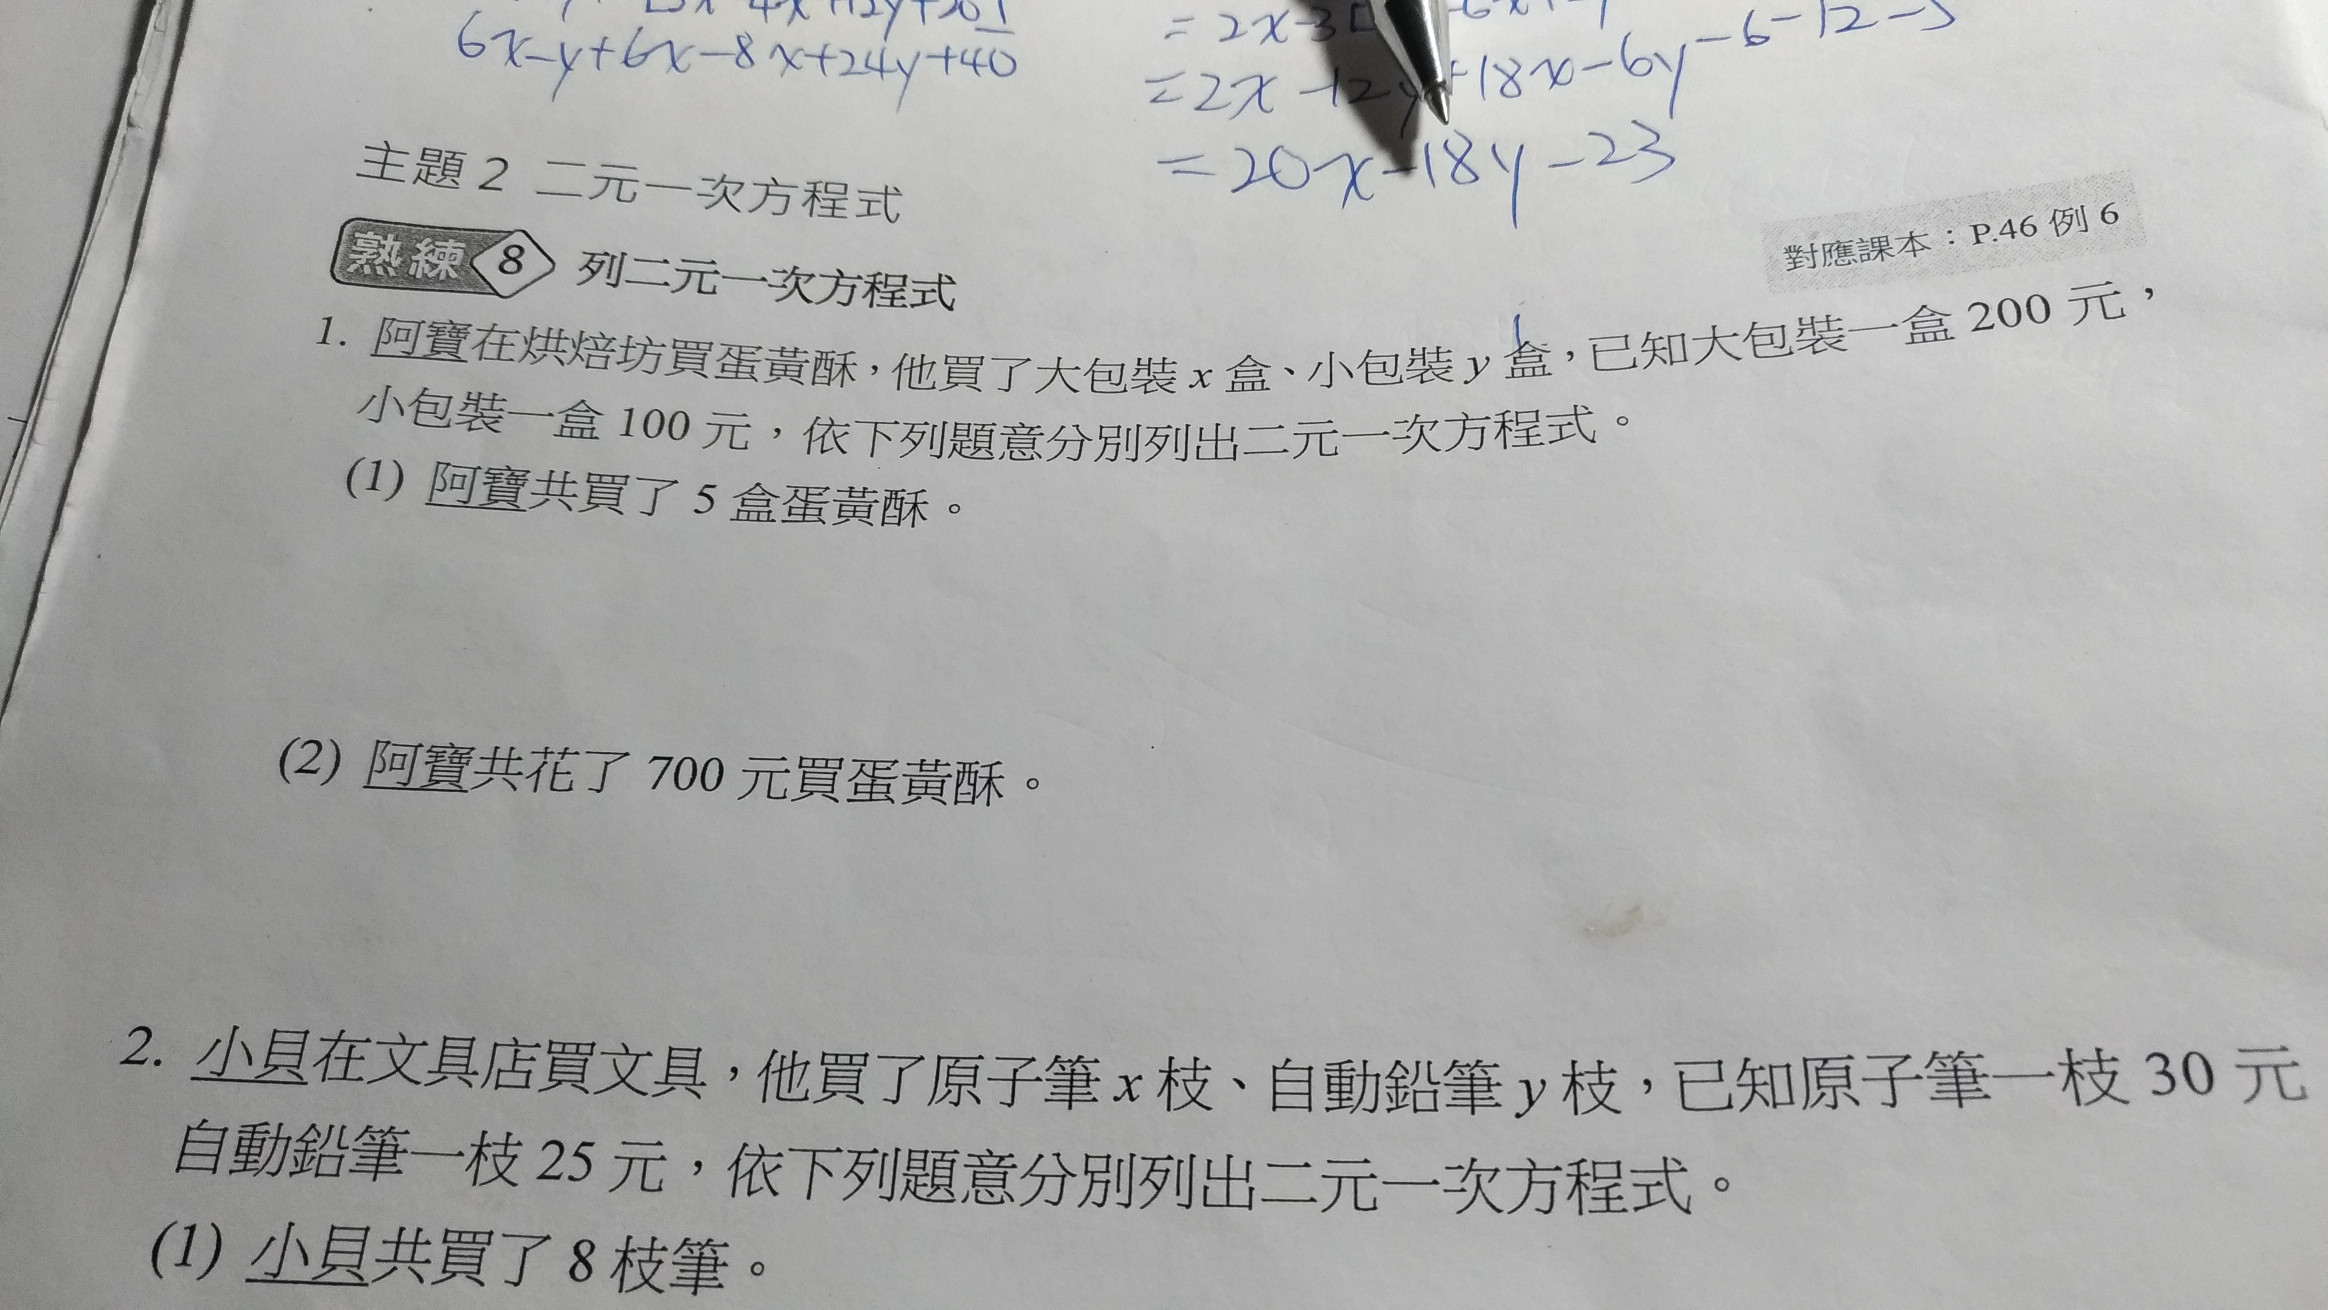 6x-y+6x-8x+24y+40
=2x-12y+18x-6y-6-12-5
=20x-18y-23
主題2 二元一次方程式
熟練 8 列二元一次方程式
對應課本：P.46 例 6
1. 阿寶在烘焙坊買蛋黃酥，他買了大包裝 x 盒、小包裝 y 盒，已知大包裝一盒 200 元，
小包裝一盒 100 元，依下列題意分別列出二元一次方程式。
(1) 阿寶共買了 5 盒蛋黃酥。
(2) 阿寶共花了 700 元買蛋黃酥。
2. 小貝在文具店買文具，他買了原子筆 x 枝、自動鉛筆 y 枝，已知原子筆一枝 30 元
自動鉛筆一枝 25 元，依下列題意分別列出二元一次方程式。
(1) 小貝共買了 8 枝筆。